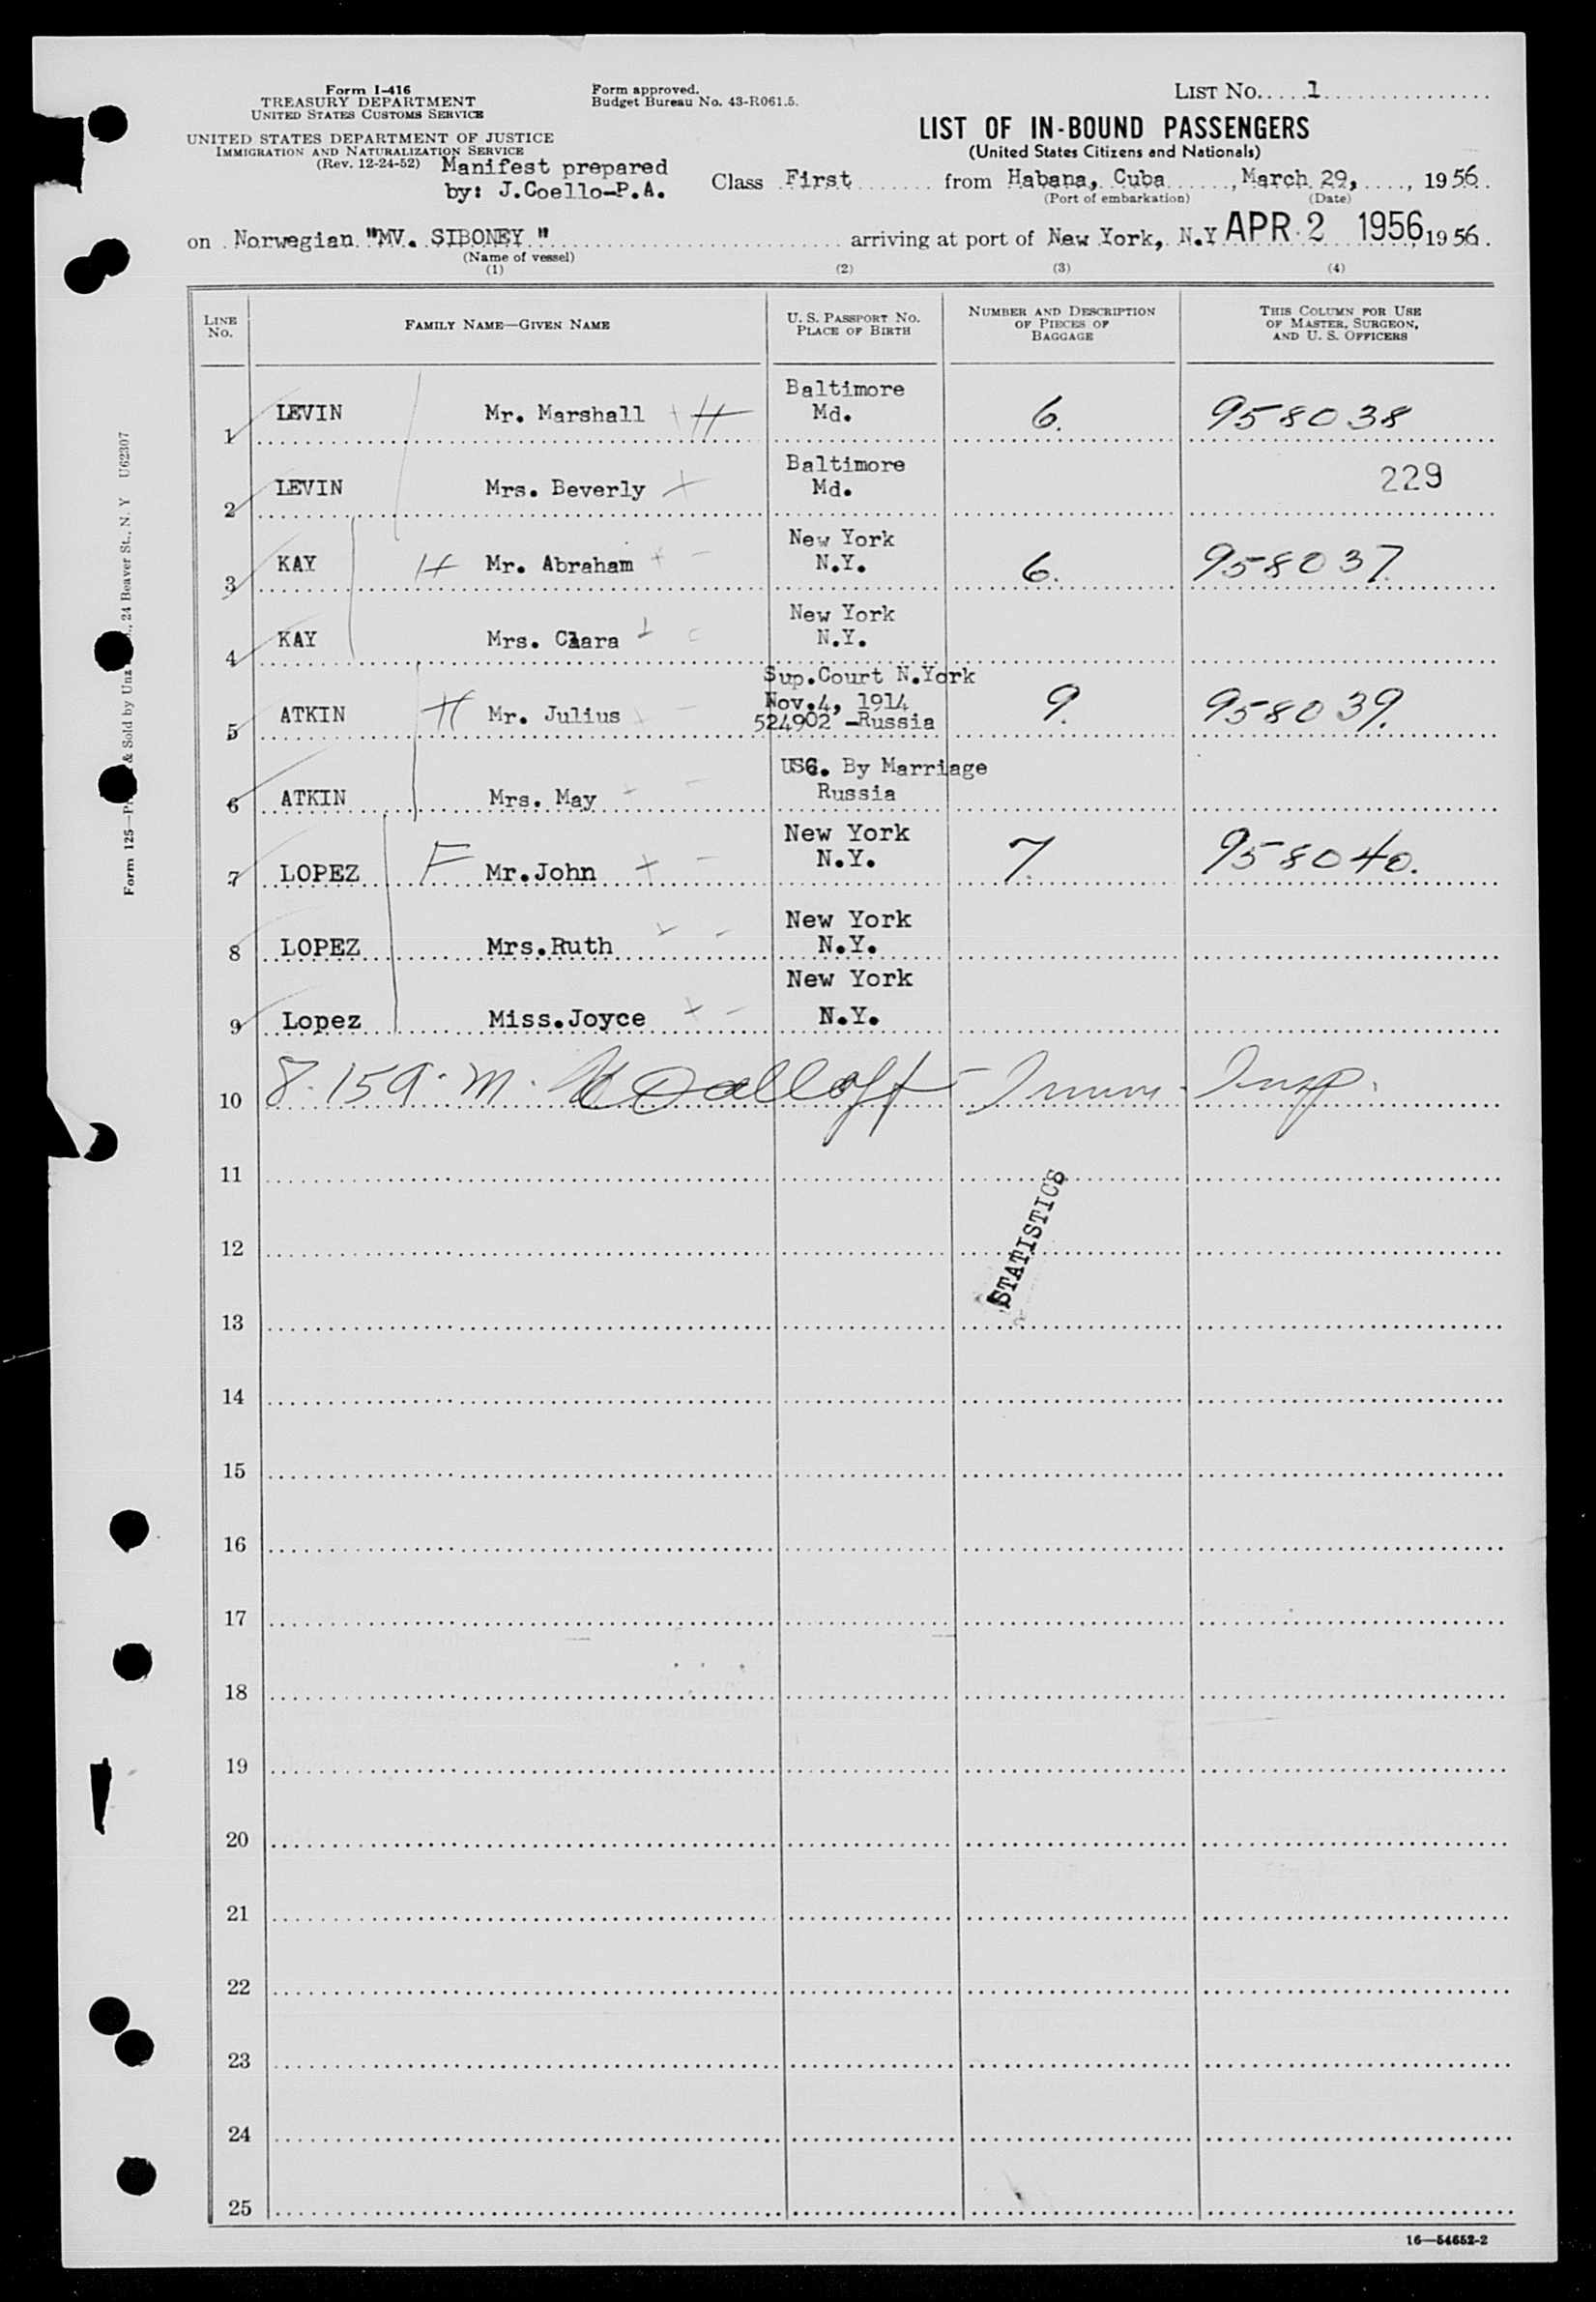 Form I-416
TREASURY DEPARTMENT
UNITED STATES CUSTOMS SERVICE
Form approved.
Budget Bureau No. 43-R061.5.
LIST No. 1
UNITED STATES DEPARTMENT OF JUSTICE
IMMIGRATION AND NATURALIZATION SERVICE
(Rev. 12-24-52)
Manifest prepared
by: J.Coello-P.A.
LIST OF IN-BOUND PASSENGERS
(United States Citizens and Nationals)
Class First from Habana, Cuba, March 29, 1956.
(Port of embarkation) (Date)
on Norwegian "MV. SIBONEY " arriving at port of New York, N.Y APR 2 1956, 1956.
(Name of vessel)
(1) (2) (3) (4)
LINE No.
FAMILY NAME—GIVEN NAME
U. S. PASSPORT NO.
PLACE OF BIRTH
NUMBER AND DESCRIPTION
OF PIECES OF
BAGGAGE
THIS COLUMN FOR USE
OF MASTER, SURGEON,
AND U. S. OFFICERS
Baltimore
1 LEVIN Mr. Marshall H Md. 6. 958038
Baltimore
229
2 LEVIN Mrs. Beverly Md.
New York
3 KAY H Mr. Abraham N.Y. 6. 958037.
New York
4 KAY Mrs. Clara N.Y.
Sup.Court N.York
Nov.4, 1914
5 ATKIN H Mr. Julius 524902 -Russia 9. 958039.
USC. By Marriage
6 ATKIN Mrs. May Russia
New York
7 LOPEZ F Mr.John N.Y. 7. 958040.
New York
8 LOPEZ Mrs.Ruth N.Y.
New York
9 Lopez Miss.Joyce N.Y.
10 8.15 a.m. Imm. Insp.
11
STATISTICS
12
13
14
15
16
17
18
19
20
21
22
23
24
25
16—54652-2
Form 125— & Sold by Unz , 24 Beaver St., N. Y U62307